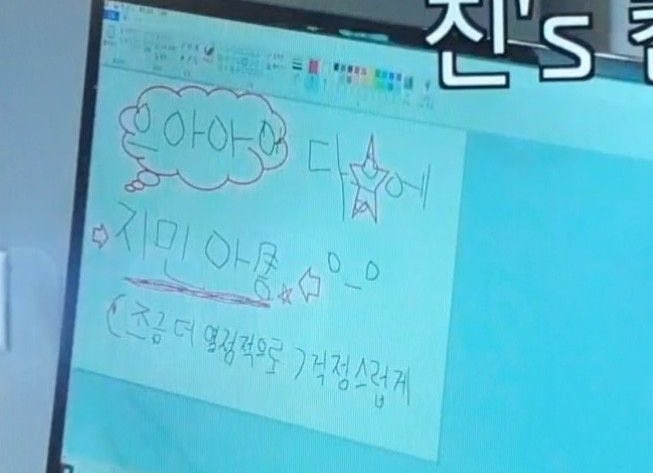 진's
으아아아 다음에
지민 아흥 ㅇ_ㅇ
(조금 더 열정적으로 걱정스럽게